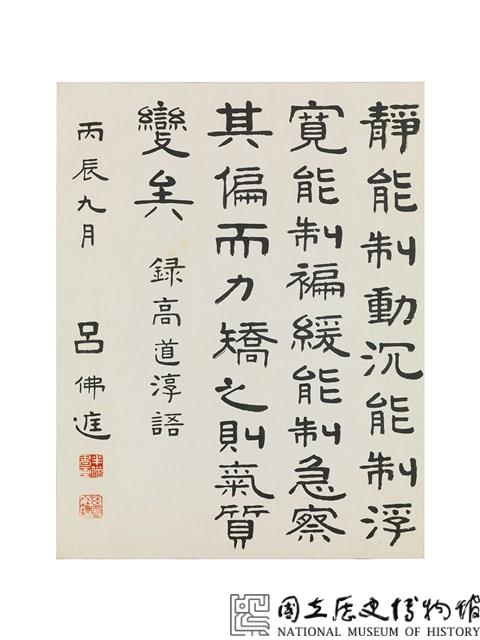 靜能制動沉能制浮
寬能制褊緩能制急察
其偏而力矯之則氣質
變矣
録高道淳語
丙辰九月 呂佛庭
國立歷史博物館
NATIONAL MUSEUM OF HISTORY